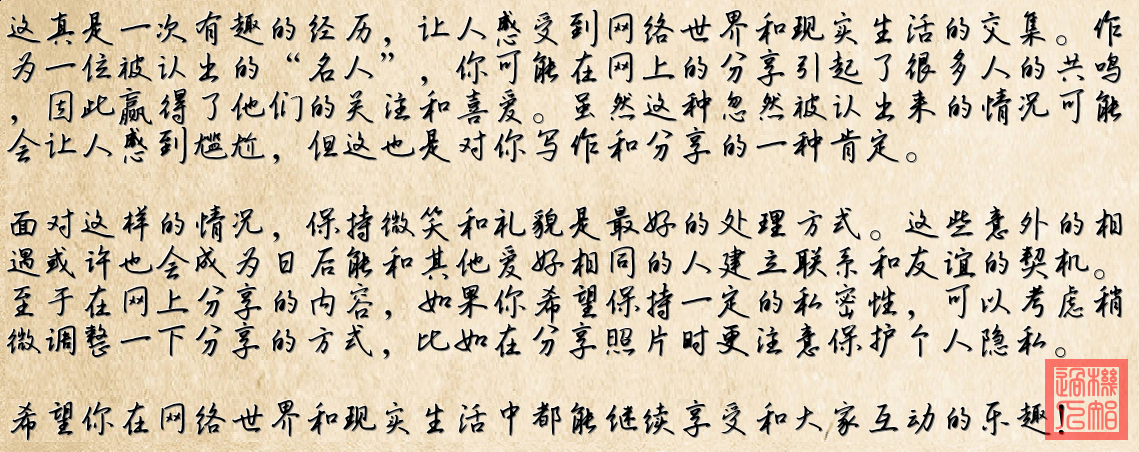 这真是一次有趣的经历，让人感受到网络世界和现实生活的交集。作
为一位被认出的“名人”，你可能在网上的分享引起了很多人的共鸣
，因此赢得了他们的关注和喜爱。虽然这种忽然被认出来的情况可能
会让人感到尴尬，但这也是对你写作和分享的一种肯定。
面对这样的情况，保持微笑和礼貌是最好的处理方式。这些意外的相
遇或许也会成为日后能和其他爱好相同的人建立联系和友谊的契机。
至于在网上分享的内容，如果你希望保持一定的私密性，可以考虑稍
微调整一下分享的方式，比如在分享照片时更注意保护个人隐私。
希望你在网络世界和现实生活中都能继续享受和大家互动的乐趣！